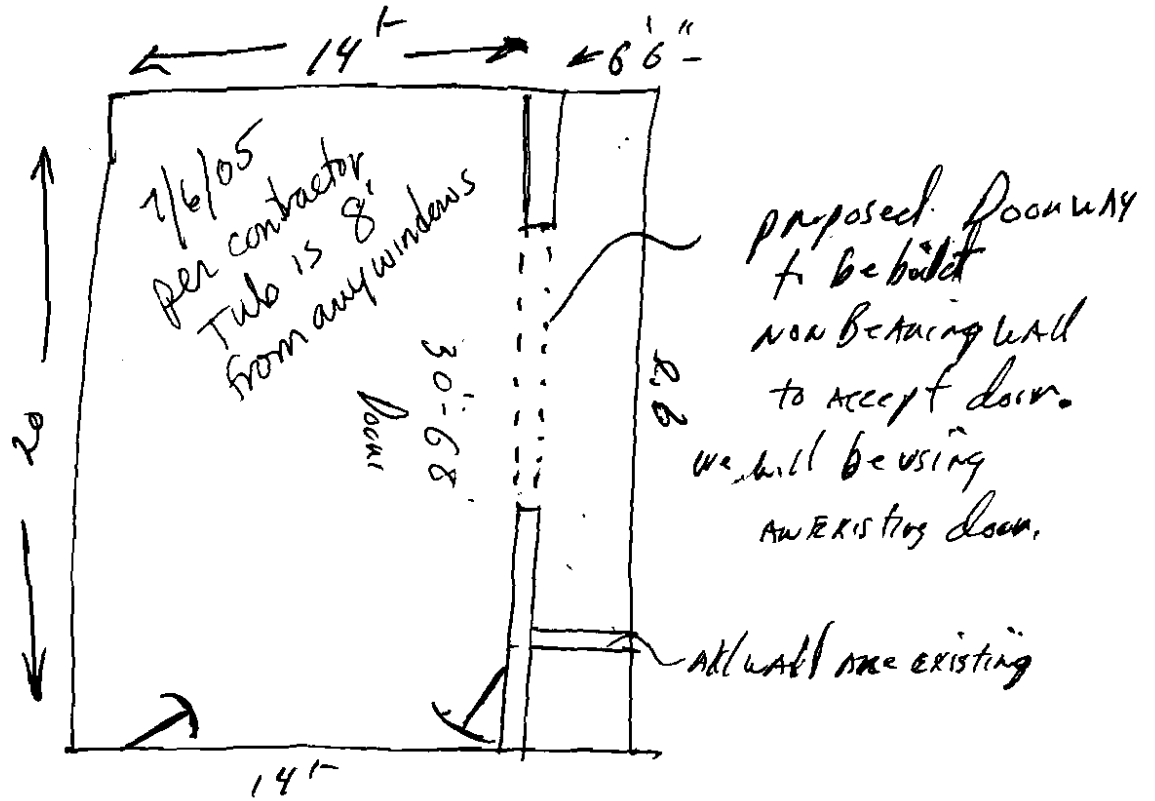 14'
6'6"
7/6/05
per contractor
Tub is 8'
from any windows
proposed Doorway
to be built
NON BEARING WALL
to accept door.
we will be using
AN EXISTING door.
20
30"-68
Door
All wall are existing
14'